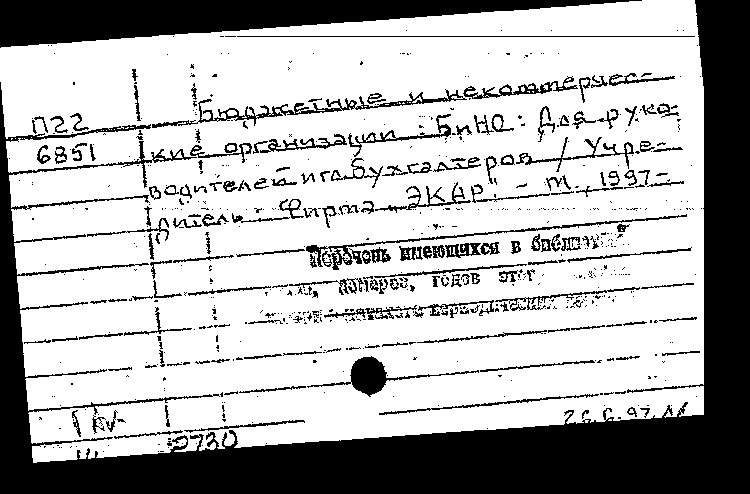 П22
6851
Бюджетные и некоммерчес-
кие организации : БиНО : Для руко-
водителей и гл. бухгалтеров / Учре-
дитель : Фирма "ЭКАР". - М., 1997-
Перечень имеющихся в
номеров, годов
периодический
2730
26.6.97.